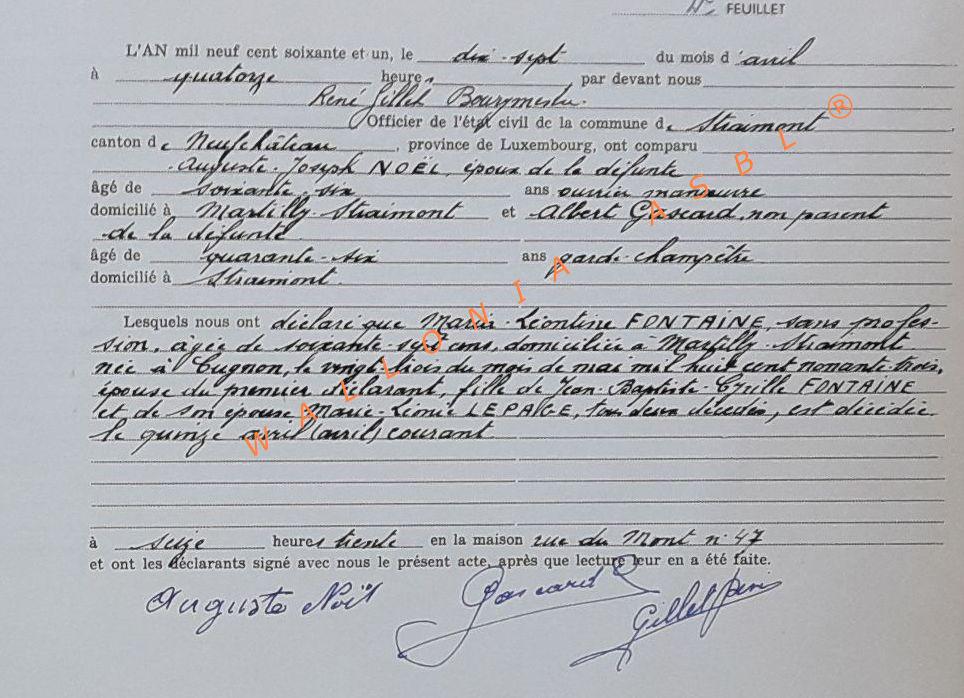 FEUILLET
L'AN mil neuf cent soixante et un, le dix-sept du mois d'avril
à quatorze heures, par devant nous
René Gillet Bourgmestre.
Officier de l'état civil de la commune de Straimont,
canton de Neufchâteau, province de Luxembourg, ont comparu
Auguste-Joseph NOËL, époux de la défunte
âgé de soixante-six ans ouvrier manœuvre
domicilié à Martilly-Straimont et Albert Gascard, non parent
de la défunte
âgé de quarante-six ans garde-champêtre
domicilié à Straimont.
Lesquels nous ont déclaré que Marie-Léontine FONTAINE, sans profes-
sion, âgée de soixante-sept ans, domiciliée à Martilly-Straimont
née à Cugnon, le vingt trois du mois de mai mil huit cent nonante-trois,
épouse du premier déclarant, fille de Jean-Baptiste-Cyrille FONTAINE
et de son épouse Marie-Léonie LEPAGE, tous deux décédés, est décédée
le quinze avril (avril) courant
à seize heures trente en la maison rue du Mont n° 47
et ont les déclarants signé avec nous le présent acte, après que lecture leur en a été faite.
Auguste Noël Gascard Gillet René
WALLONIA ASBL®